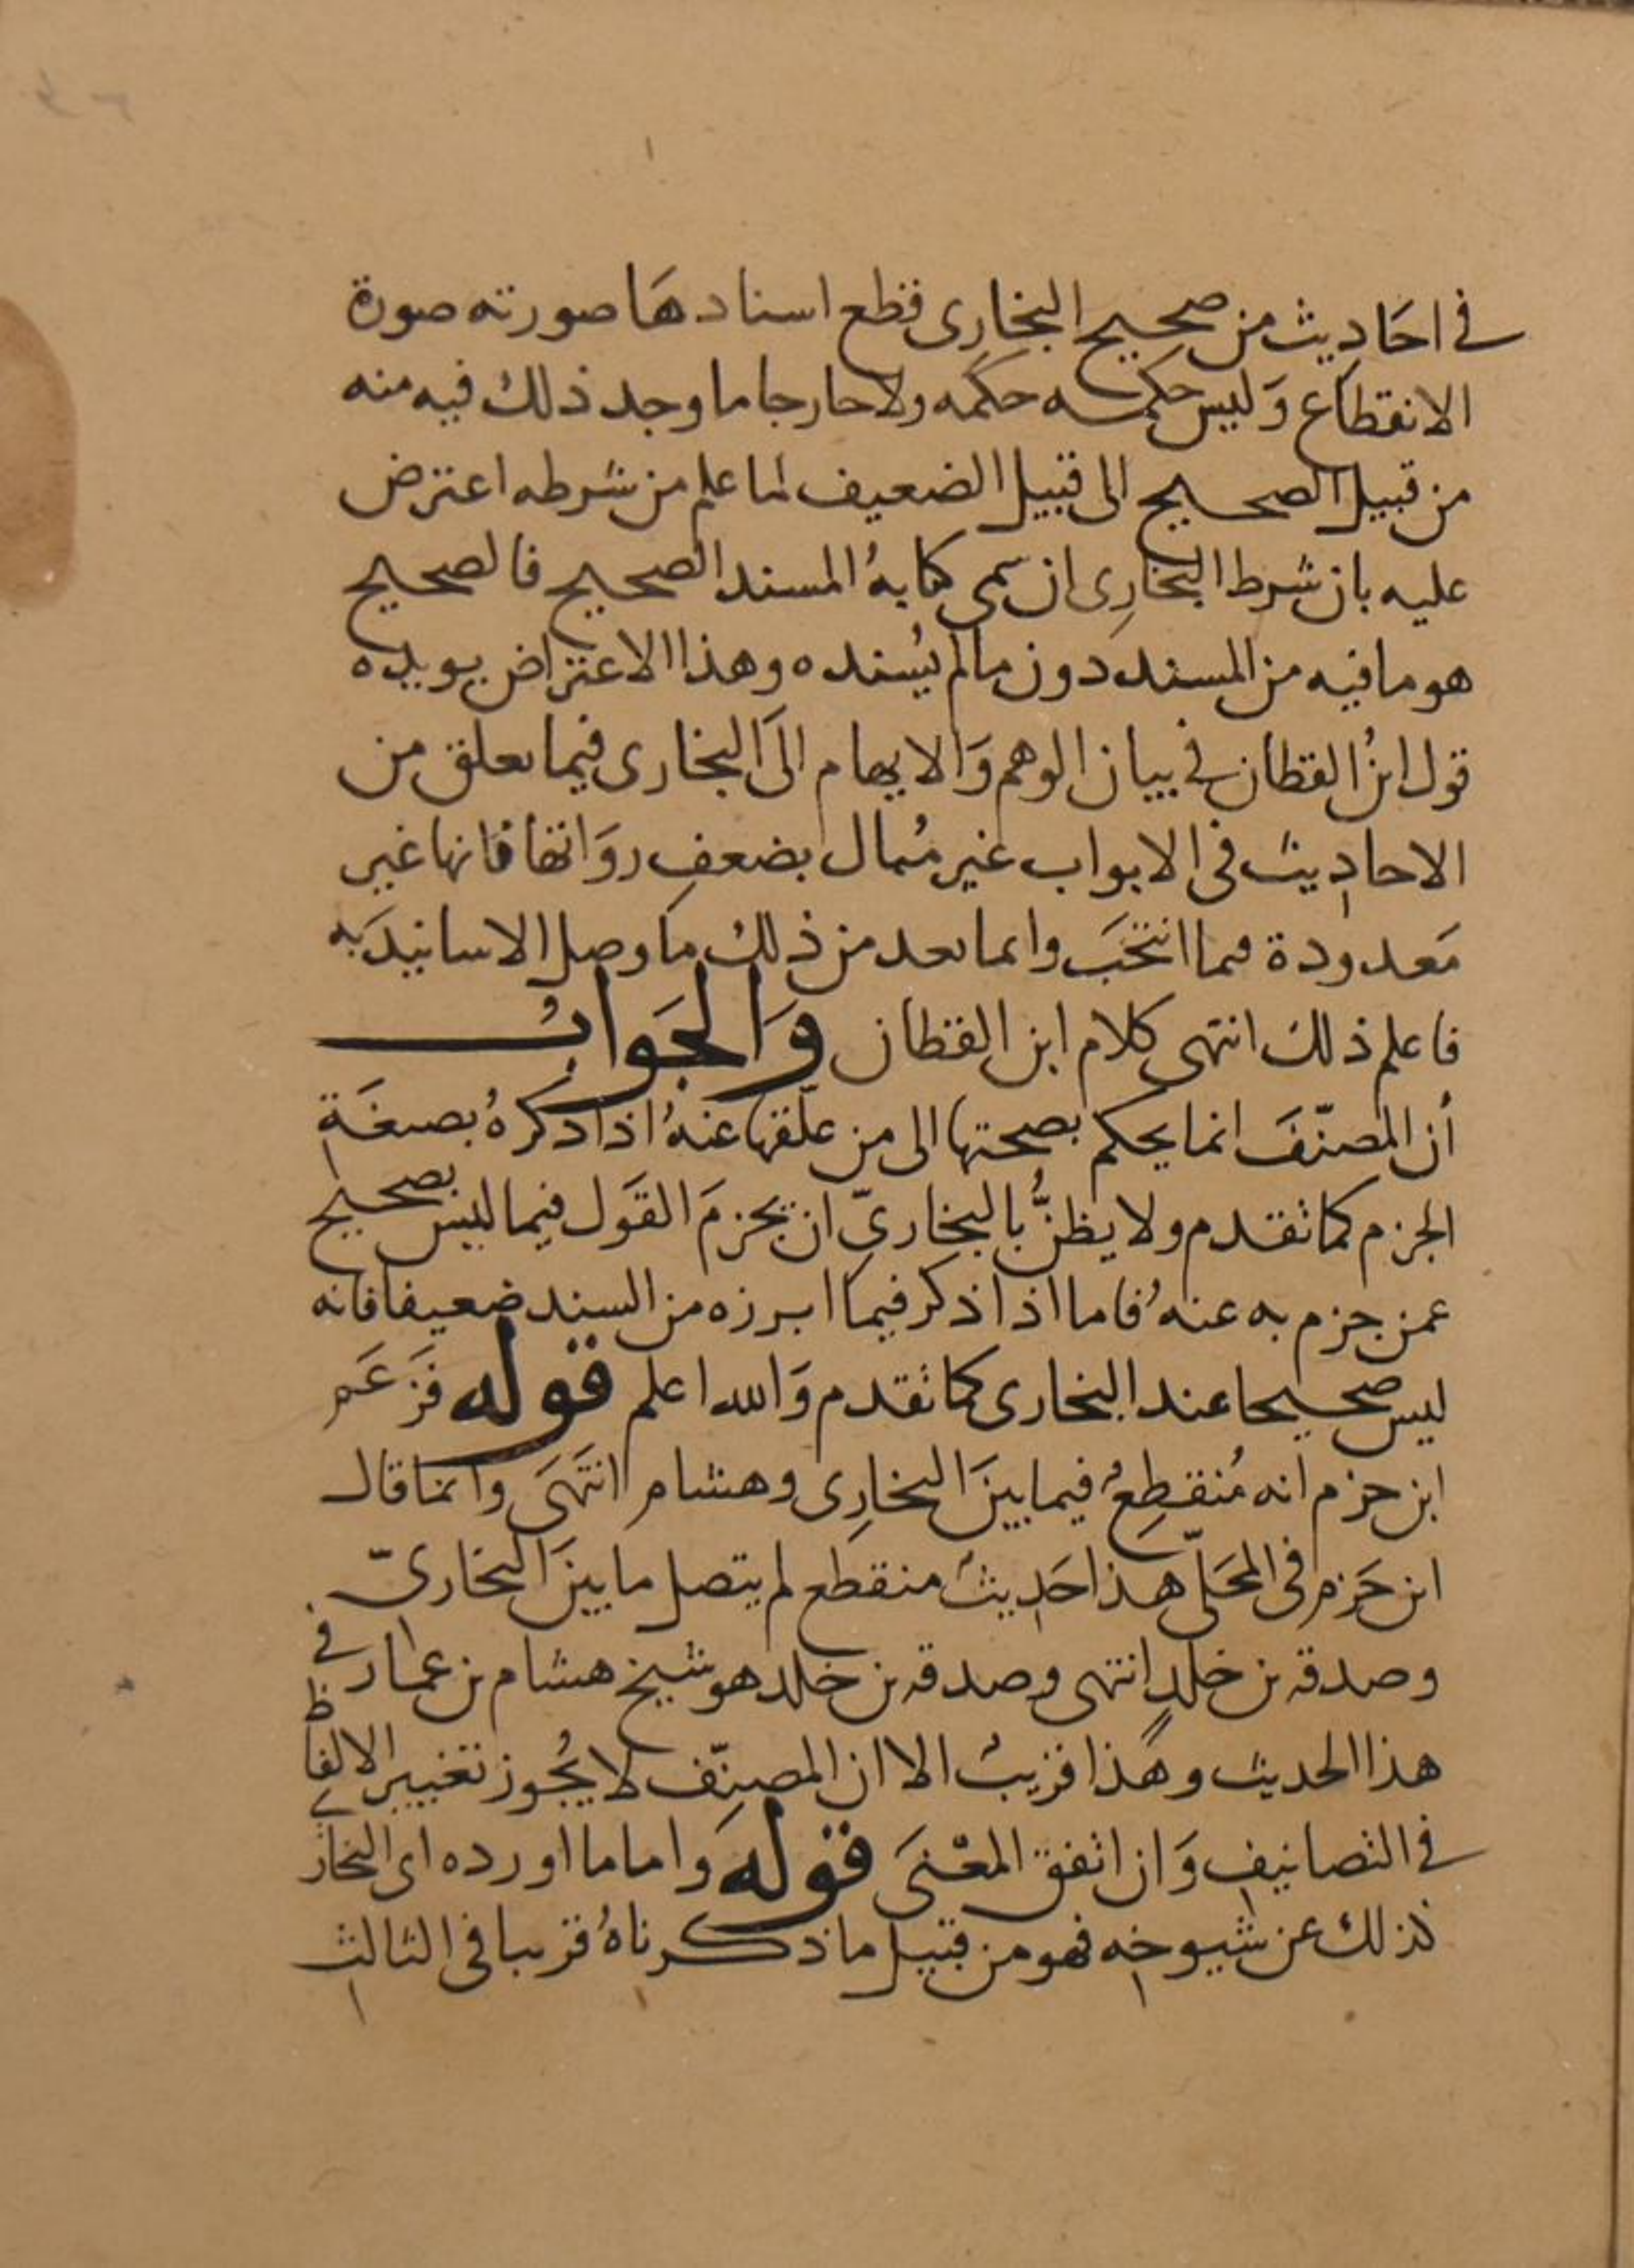 في احَادِيث من صحيح البخارِى قطع اسنادهَا صورته صورة
الانقطاع وَليس حكمه حكمه ولاحارجا ما وجد ذلك فيه منه
من قبيل الصحيح الى قبيل الضعيف لما علم من شرطه اعترض
عليه بان شرط البخارِى ان سمى كتابهُ المسند الصحيح فالصحيح
هو ما فيه من المسند دون ما لم يُسنده وهذا الاعتراض يويده
قول ابنُ القطان في بيان الوهم وَالايهام الىَ البخارى فيما يعلق من
الاحادِيث فى الابواب غير مُبال بضعفِ روَاتها فانها غير
مَعدودة فيما انتخَب وانما يعد من ذلك ما وصل الاسانيدَ به
فاعلم ذلك انتهى كلام ابن القطان وَالجَوابُ
أن المصنّفَ انما يحكم بصحتها الى من علّقها عنهُ اذا ذكرهُ بصيغَةِ
الجزم كما تقدم ولا يظنُّ بالبخاريّ ان يجزمَ القَول فيما ليس بصحيح
عمن جزم به عنهُ فاما اذا ذكر فيما ابرزه من السند ضعيفا فانه
ليس صحيحا عند البخارى كما تقدم وَالله اعلم قوله فَزعَم
ابن حزم انه مُنقطِعُ فيما بينَ البخارِى وهشام انتَهَى وانما قال
ابن حَزم فى المحَلّى هذا حَدِيثُ منقطع لم يتصل ما بينَ البخاريّ
وصدقة بن خالدٍ انتهى وصدقة بن خالد هو شيخ هشام بن عمار في
هذا الحديث وهَذا قريبُ الا ان المصنّف لا يُجوز تغيير الالفاظ
في التصانيفِ وَان اتفق المعْنىَ قوله وَاما ما اورده اى البخارى
كذلك عن شيوخِه فهو من قبيل ما ذكرناهُ قريبا فى الثالث